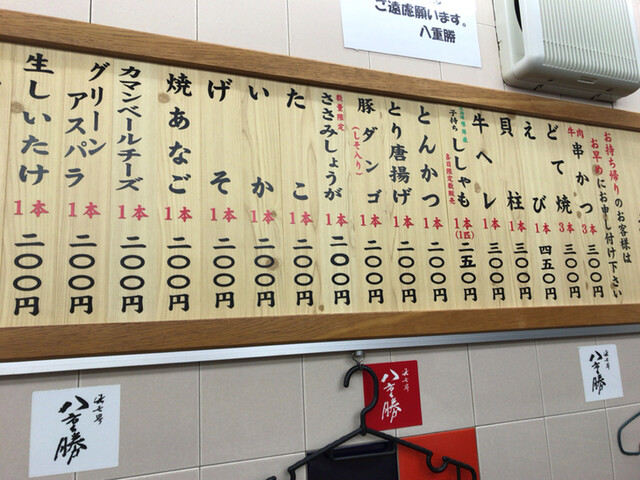 ご遠慮願います。
八重勝
お持ち帰りのお客様は
お早めにお申し付け下さい
牛肉
串かつ 3本 三〇〇円
どて焼 3本 三〇〇円
えび 1本 四五〇円
貝柱 1本 三〇〇円
牛ヘレ 1本 三〇〇円
子持ち
ししゃも 1本(1匹) 二五〇円
各日限定数販売
とんかつ 1本 二〇〇円
とり唐揚げ 1本 二〇〇円
豚ダンゴ 1本 二〇〇円
(しそ入り)
数量限定
ささみしょうが 1本 二〇〇円
たこ 1本 二〇〇円
いか 1本 二〇〇円
げそ 1本 二〇〇円
焼あなご 1本 二〇〇円
カマンベールチーズ 1本 二〇〇円
グリーン
アスパラ 1本 二〇〇円
生しいたけ 1本 二〇〇円
八重勝
八重勝
八重勝